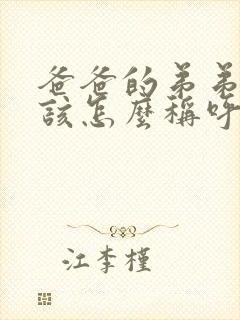 爸爸的弟弟
該怎麼稱呼
江李槿